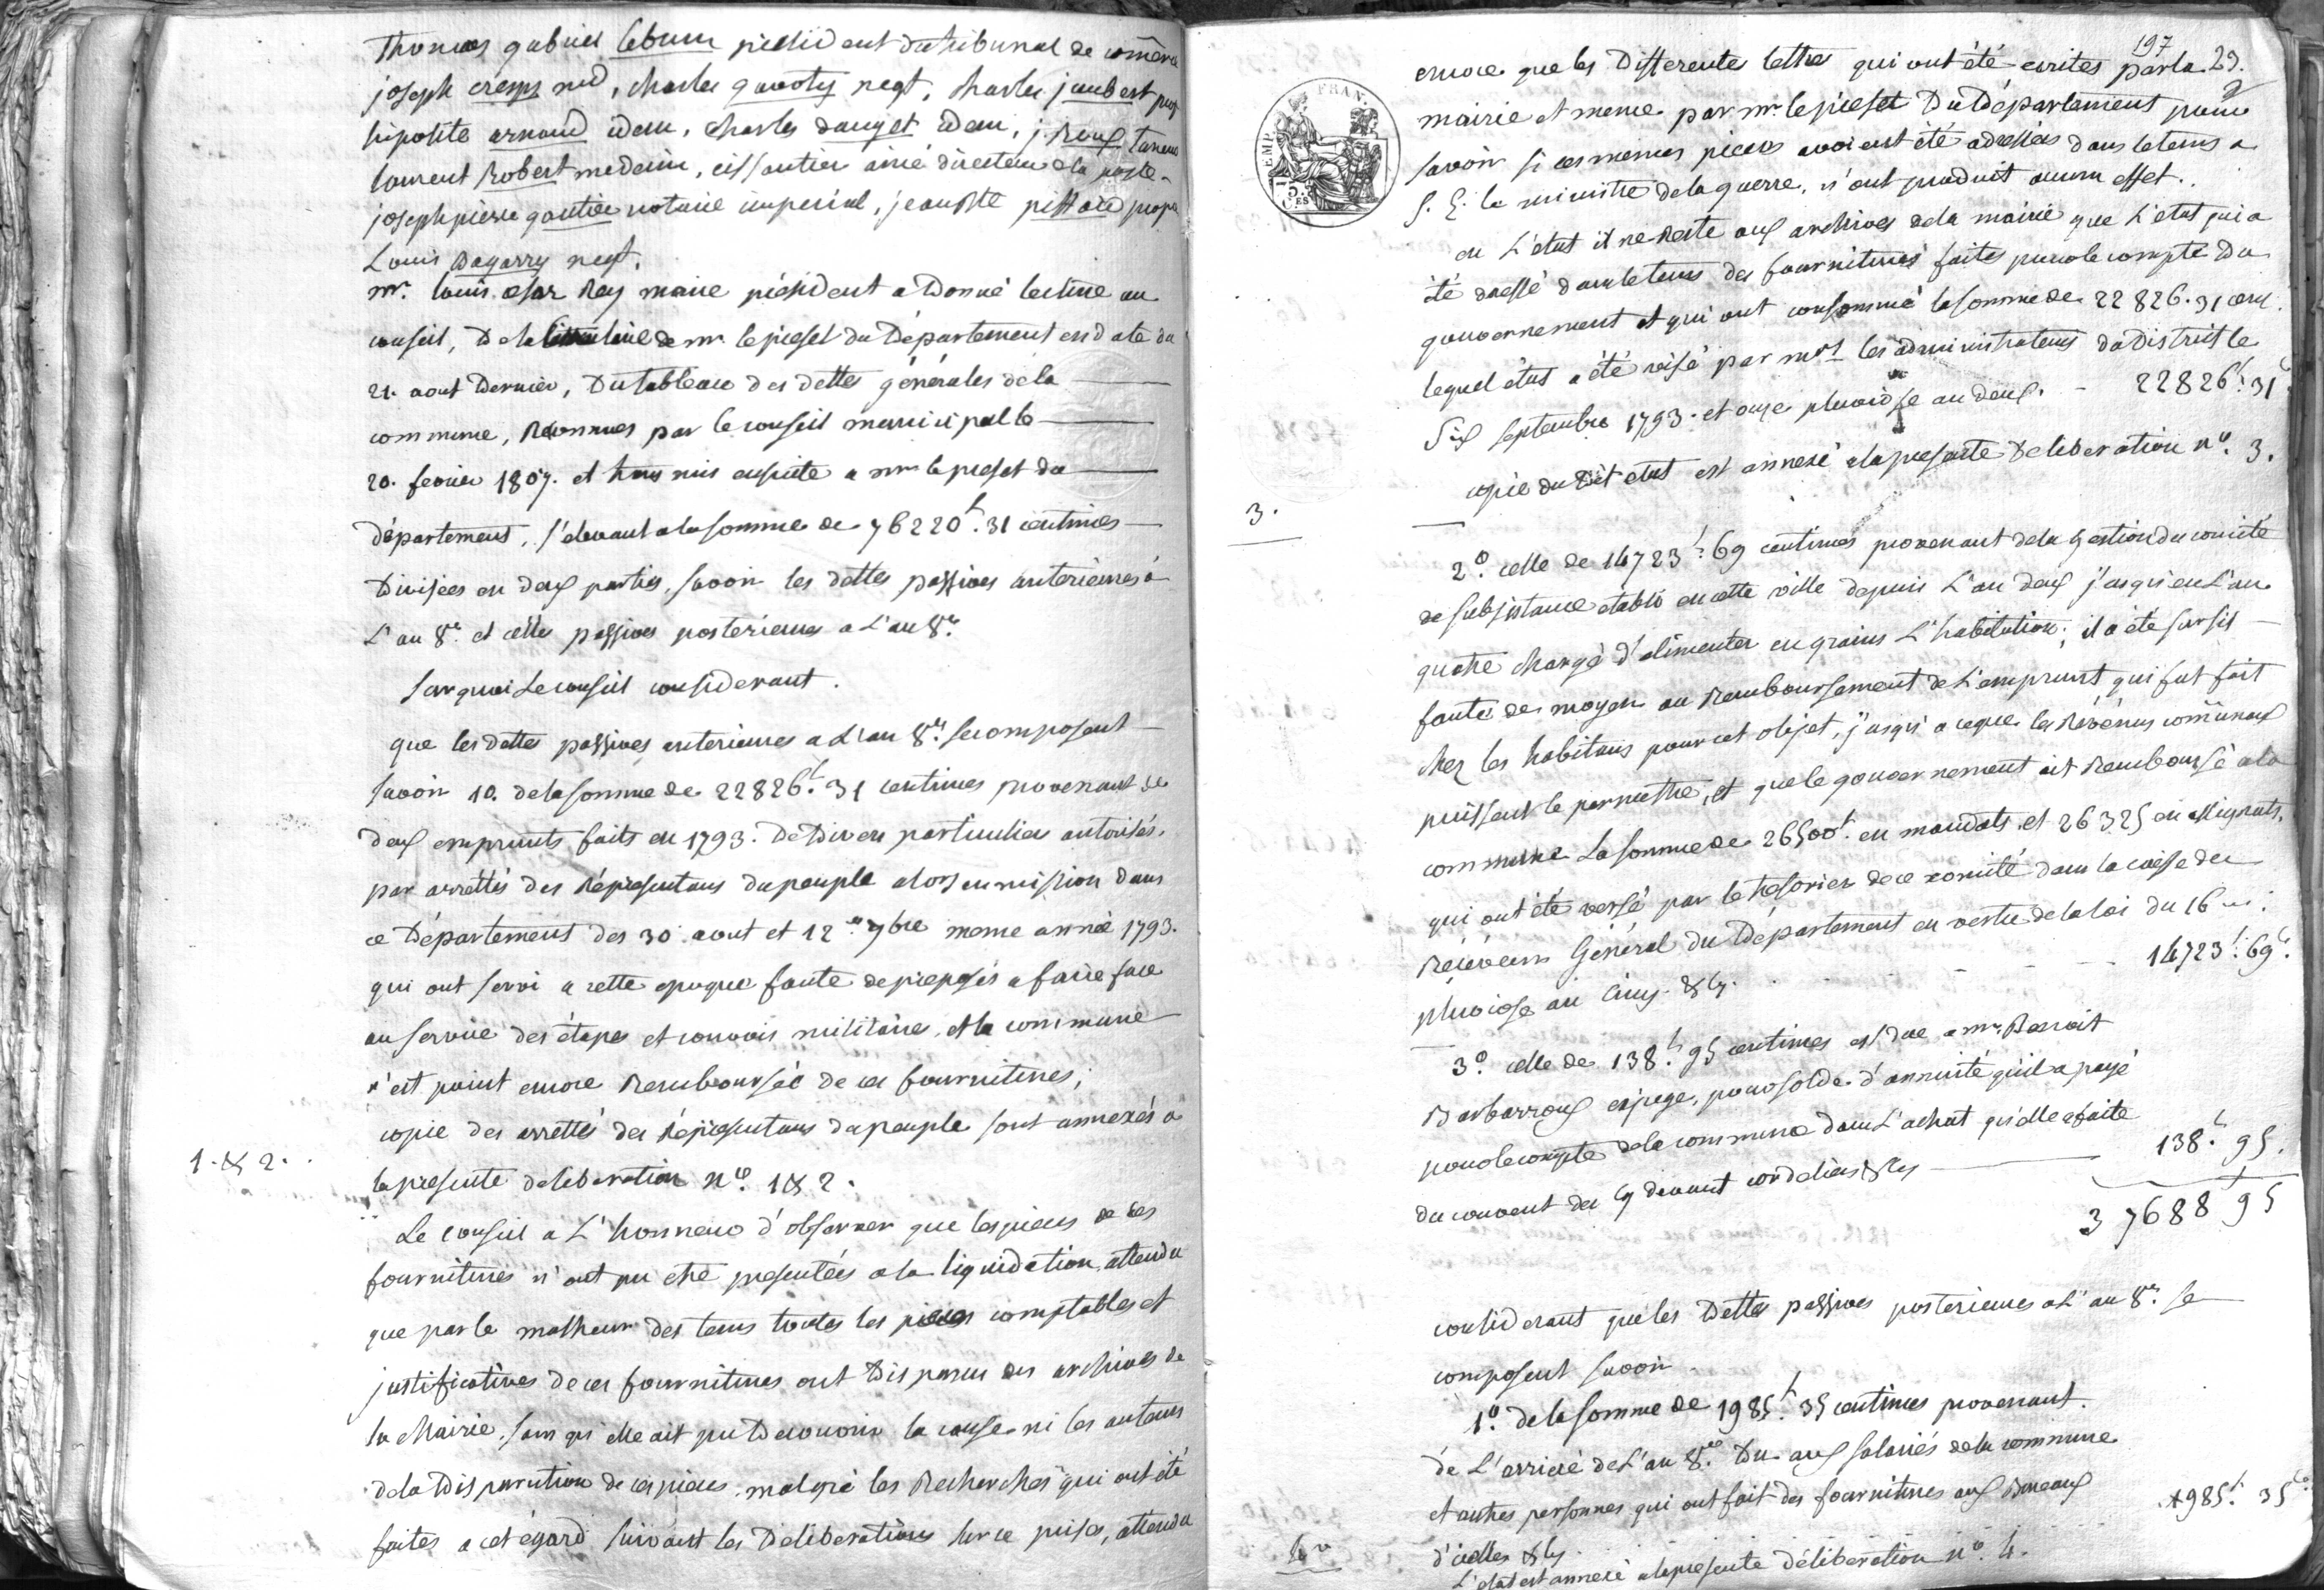 Thomas gabriel lebrun président du tribunal de comerce
joseph cresps nd, charles gavoty negt, charles jaubert prop
hipolite arnaud idem, charles dauget idem, j. Roux taneur
laurent Robert medecin, gautier ainé directeur de la poste
joseph pierre gautier notaire imperial, jean Bte pissard propre
Louis Dagarry negt.
mr. louis cesar Rey maire président a Donné lecture au
conseil, De la circulaire de mr. le prefet du Département en date du
21. aout Dernier, Du tableau des dettes générales de la
commune, Reconnues par le conseil municipal le
20. fevrier 1807. et transmis ensuite a mr le prefet du
département, s'elevant a la somme de 76220f. 31 centimes
Divisées en deux parties, savoir les dettes passives anterieures à
L'an 8e. et celles passives posterieures a L'an 8e.
sur quoi Le conseil considerant.
que les dettes passives anterieures a L'an 8e. se composent
savoir 1o. de la somme de 22826f. 31 centimes provenant de
deux emprunts faits en 1793. De Divers particuliers autorisés.
par arrettés des Représentans du peuple alors en mission dans
ce Département des 30 aout et 12 7bre meme année 1793.
qui ont servi a cette epoque faute de preposés a faire face
au service des étapes et convois militaires, et la commune
n'est point encore Remboursée de ces fournitures;
copie des arrettés des Réprésentans du peuple sont annexés a
1. & 2.
la presente deliberation no. 1 & 2.
Le conseil a L'honneur d'observer que les pieces de ces
fournitures n'ont pu etre presentées a la liquidation, attendu
que par le malheur des tems toutes les pieces comptables et
justificatives de ces fournitures ont Disparu des archives de
la Mairie, sans qu'elle ait pu Decouvrir la cause ni les auteurs
de la Disparution de ces pieces, malgré les Recherches qui ont été
faites a cet égard suivant les Deliberations sur ce prises, attendu
197
29.
encore que les Differente lettres qui ont été ecrites par la
mairie et meme par mr. le prefet Du Département pour
savoir si ces memes pieces avoient été adressées dans le tems a
S. E. le ministre de la guerre, n'ont produit aucun effet.
en L'etat il ne Reste aux archives de la mairie que L'etat qui a
été dressé dans le tems des fournitures faites pour le compte Du
gouvernement et qui ont consommé la somme de 22826. 31 cent.
lequel état a été visé par mrs les administrateurs du District le
Six septembre 1793. et onze pluviose an deux. - 22826f. 31c
copie du Dit etat est annexé a la presente Deliberation no. 3.
3.
2o. celle de 14723f. 69 centimes provenant de la gestion du comité
de subsistance etabli en cette ville depuis L'an deux jusqu'en L'an
quatre chargé d'alimenter en grains L'habitation; il a été sursis
faute de moyen au Remboursement de L'emprunt qui fut fait
chez les habitans pour cet objet, jusqu'a ce que les Révénus comunaux
puissent le permettre, et que le gouvernement ait Remboursé a la
commune La somme de 26500f. en mandats et 26325 en assignats.
qui ont été versé par le tresorier de ce comité dans la caisse du
Réceveur Général du Département en vertu de la loi du 16
pluviose an Cinq. &ca. - - - 14723f. 69c.
3o. celle de 138f. 95 centimes est due a mr. Benoit
Barbarroux , pour solde d'annuité qu'il a payé
pour le compte de la commune dans L'achat qu'elle a faite
du couvent des cy devant cordeliers &ca 138f. 95.
37688 95
considerant que les Dettes passives posterieures a L'an 8e. se
composent savoir
1o. de la somme de 1985f. 35 centimes provenant.
de L'arrieré de L'an 8e. Du aux salariés de la commune
et autres personnes qui ont fait des fournitures aux Bureaux
d'icelles &ca. 1985f. 35c
4
L'etat est annexé a la presente déliberation no. 4.